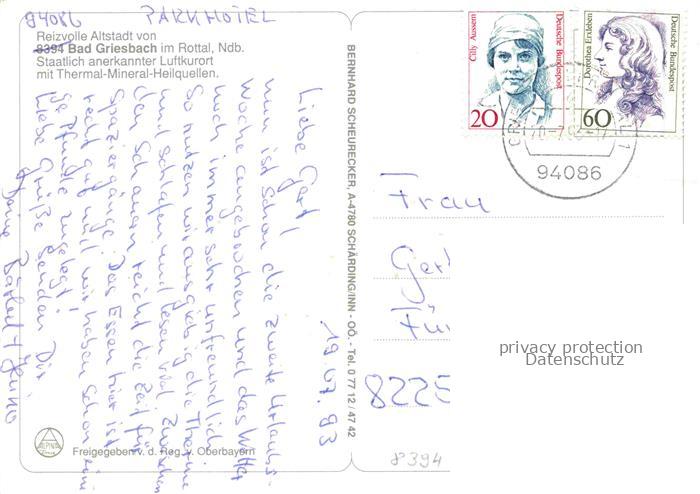 94086 PARKHOTEL
Reizvolle Altstadt von
8394 Bad Griesbach im Rottal, Ndb.
Staatlich anerkannter Luftkurort
mit Thermal-Mineral-Heilquellen.
19.07.93
Liebe Gerti
nun ist schon die zweite Urlaubs-
woche angebrochen und das Wetter
noch immer sehr unfreundlich.
So nutzen wir ausgiebig die Therme
und schlafen und lesen viel. Zwischen
den Schauern reicht die Zeit für
Spaziergänge. Das Essen hier ist
recht gut und wir haben schon eini-
ge Pfunde zugelegt!
Liebe Grüße senden Dir
Heino
BERNHARD SCHEURECKER, A-4780 SCHÄRDING/INN - OÖ. - Tel. 0 77 12 / 47 42
Cilly Aussem
Deutsche Bundespost
20
Dorothea Erxleben
Deutsche Bundespost
60
94086
Frau
Ger
Fü
8225
privacy protection
Datenschutz
ALPINA
Freigegeben v. d. Reg. v. Oberbayern
8394